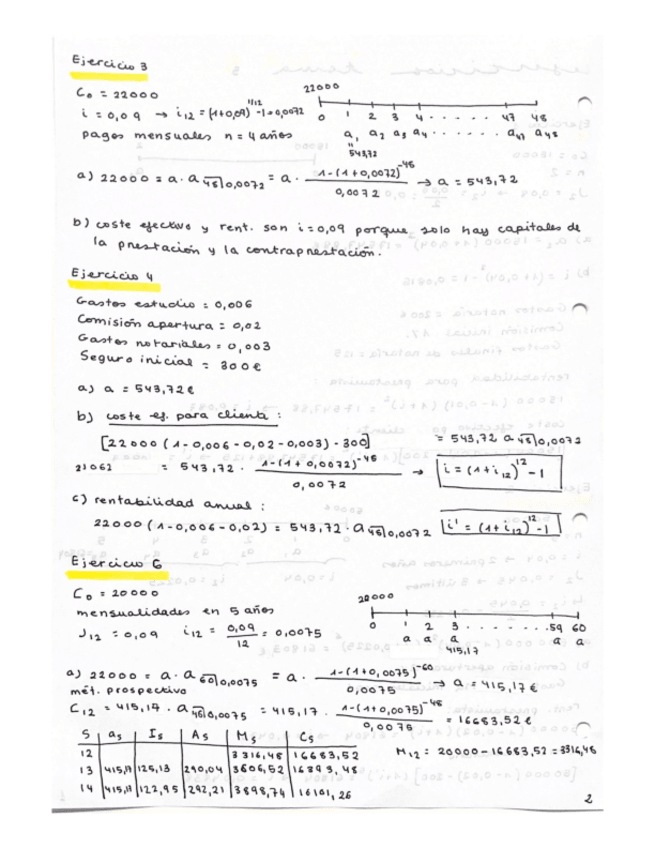 Ejercicio 3
C₀ = 22000
i = 0,09 → i₁₂ = (1+0,09)^1/12 - 1 = 0,0072
pagos mensuales n = 4 años
22000
0 1 2 3 4 ······ 47 48
a₁ a₂ a₃ a₄ ······ a₄₇ a₄₈
"
543,72
a) 22000 = a · a 48|0,0072 = a · 1-(1+0,0072)^-48 / 0,0072 → a = 543,72
b) coste efectivo y rent. son i = 0,09 porque solo hay capitales de
la prestación y la contraprestación.
Ejercicio 4
Gastos estudio = 0,006
Comisión apertura = 0,02
Gastos notariales = 0,003
Seguro inicial = 300€
a) a = 543,72€
b) coste ef. para cliente :
[22000 (1-0,006-0,02-0,003) - 300] = 543,72 a 48|0,0072
21062 = 543,72 · 1-(1+0,0072)^-48 / 0,0072 → i = (1+i₁₂)^12 - 1
c) rentabilidad anual :
22000 (1-0,006-0,02) = 543,72 · a 48|0,0072 i' = (1+i₁₂)^12 - 1
Ejercicio 6
C₀ = 20000
mensualidades en 5 años
J₁₂ = 0,09 i₁₂ = 0,09 / 12 = 0,0075
20000
0 1 2 3 ········ 59 60
a a a a a
415,17
a) 22000 = a · a 60|0,0075 = a · 1-(1+0,0075)^-60 / 0,0075 → a = 415,17€
mét. prospectivo
C₁₂ = 415,17 · a 48|0,0075 = 415,17 · 1-(1+0,0075)^-48 / 0,0075 = 16683,52€
S as Is As Ms Cs
12 3316,48 16683,52
13 415,17 125,13 290,04 3606,52 16393,48
14 415,17 122,95 292,21 3898,74 16101,26
M₁₂ = 20000 - 16683,52 = 3316,48
2